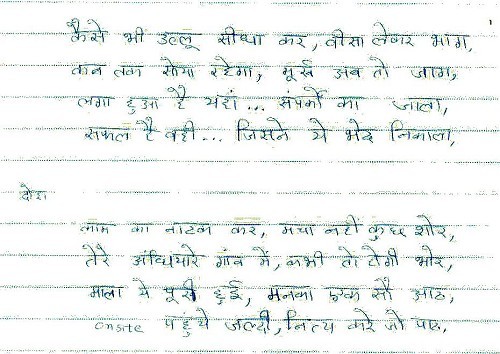 कैसे भी उल्लू सीधा कर, वीसा लेकर भाग,
कब तक सोया रहेगा, मूर्ख अब तो जाग,
लगा हुआ है यहां... संपर्कों का जाला,
सफल है वही... जिसने ये भेद निकाला,
दोहा
काम का नाटक कर, मचा नहीं कुछ शोर,
तेरे अंधियारे गांव में, कभी तो होगी भोर,
माला ये पूरी हुई, मनका एक सौ आठ,
onsite पहुचे जल्दी, नित्य करे जो पाठ,